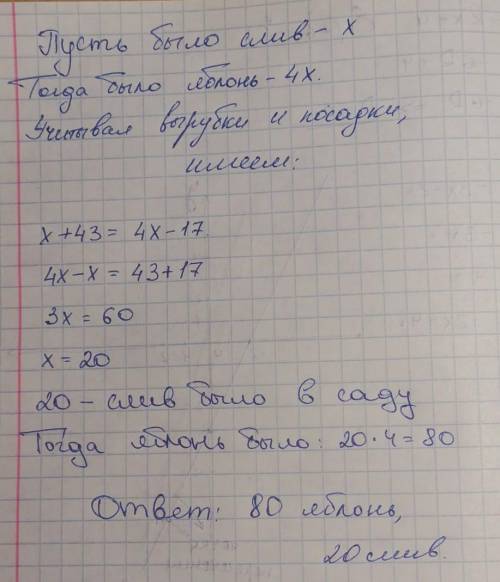 Пусть было слив - x
Тогда было яблонь - 4x.
Учитывая вырубки и посадки,
имеем:
x+43 = 4x-17
4x-x = 43+17
3x = 60
x = 20
20 - слив было в саду
Тогда яблонь было: 20·4=80
Ответ: 80 яблонь,
20 слив.